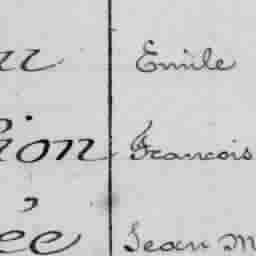 Emile
ion François
ée Jean M